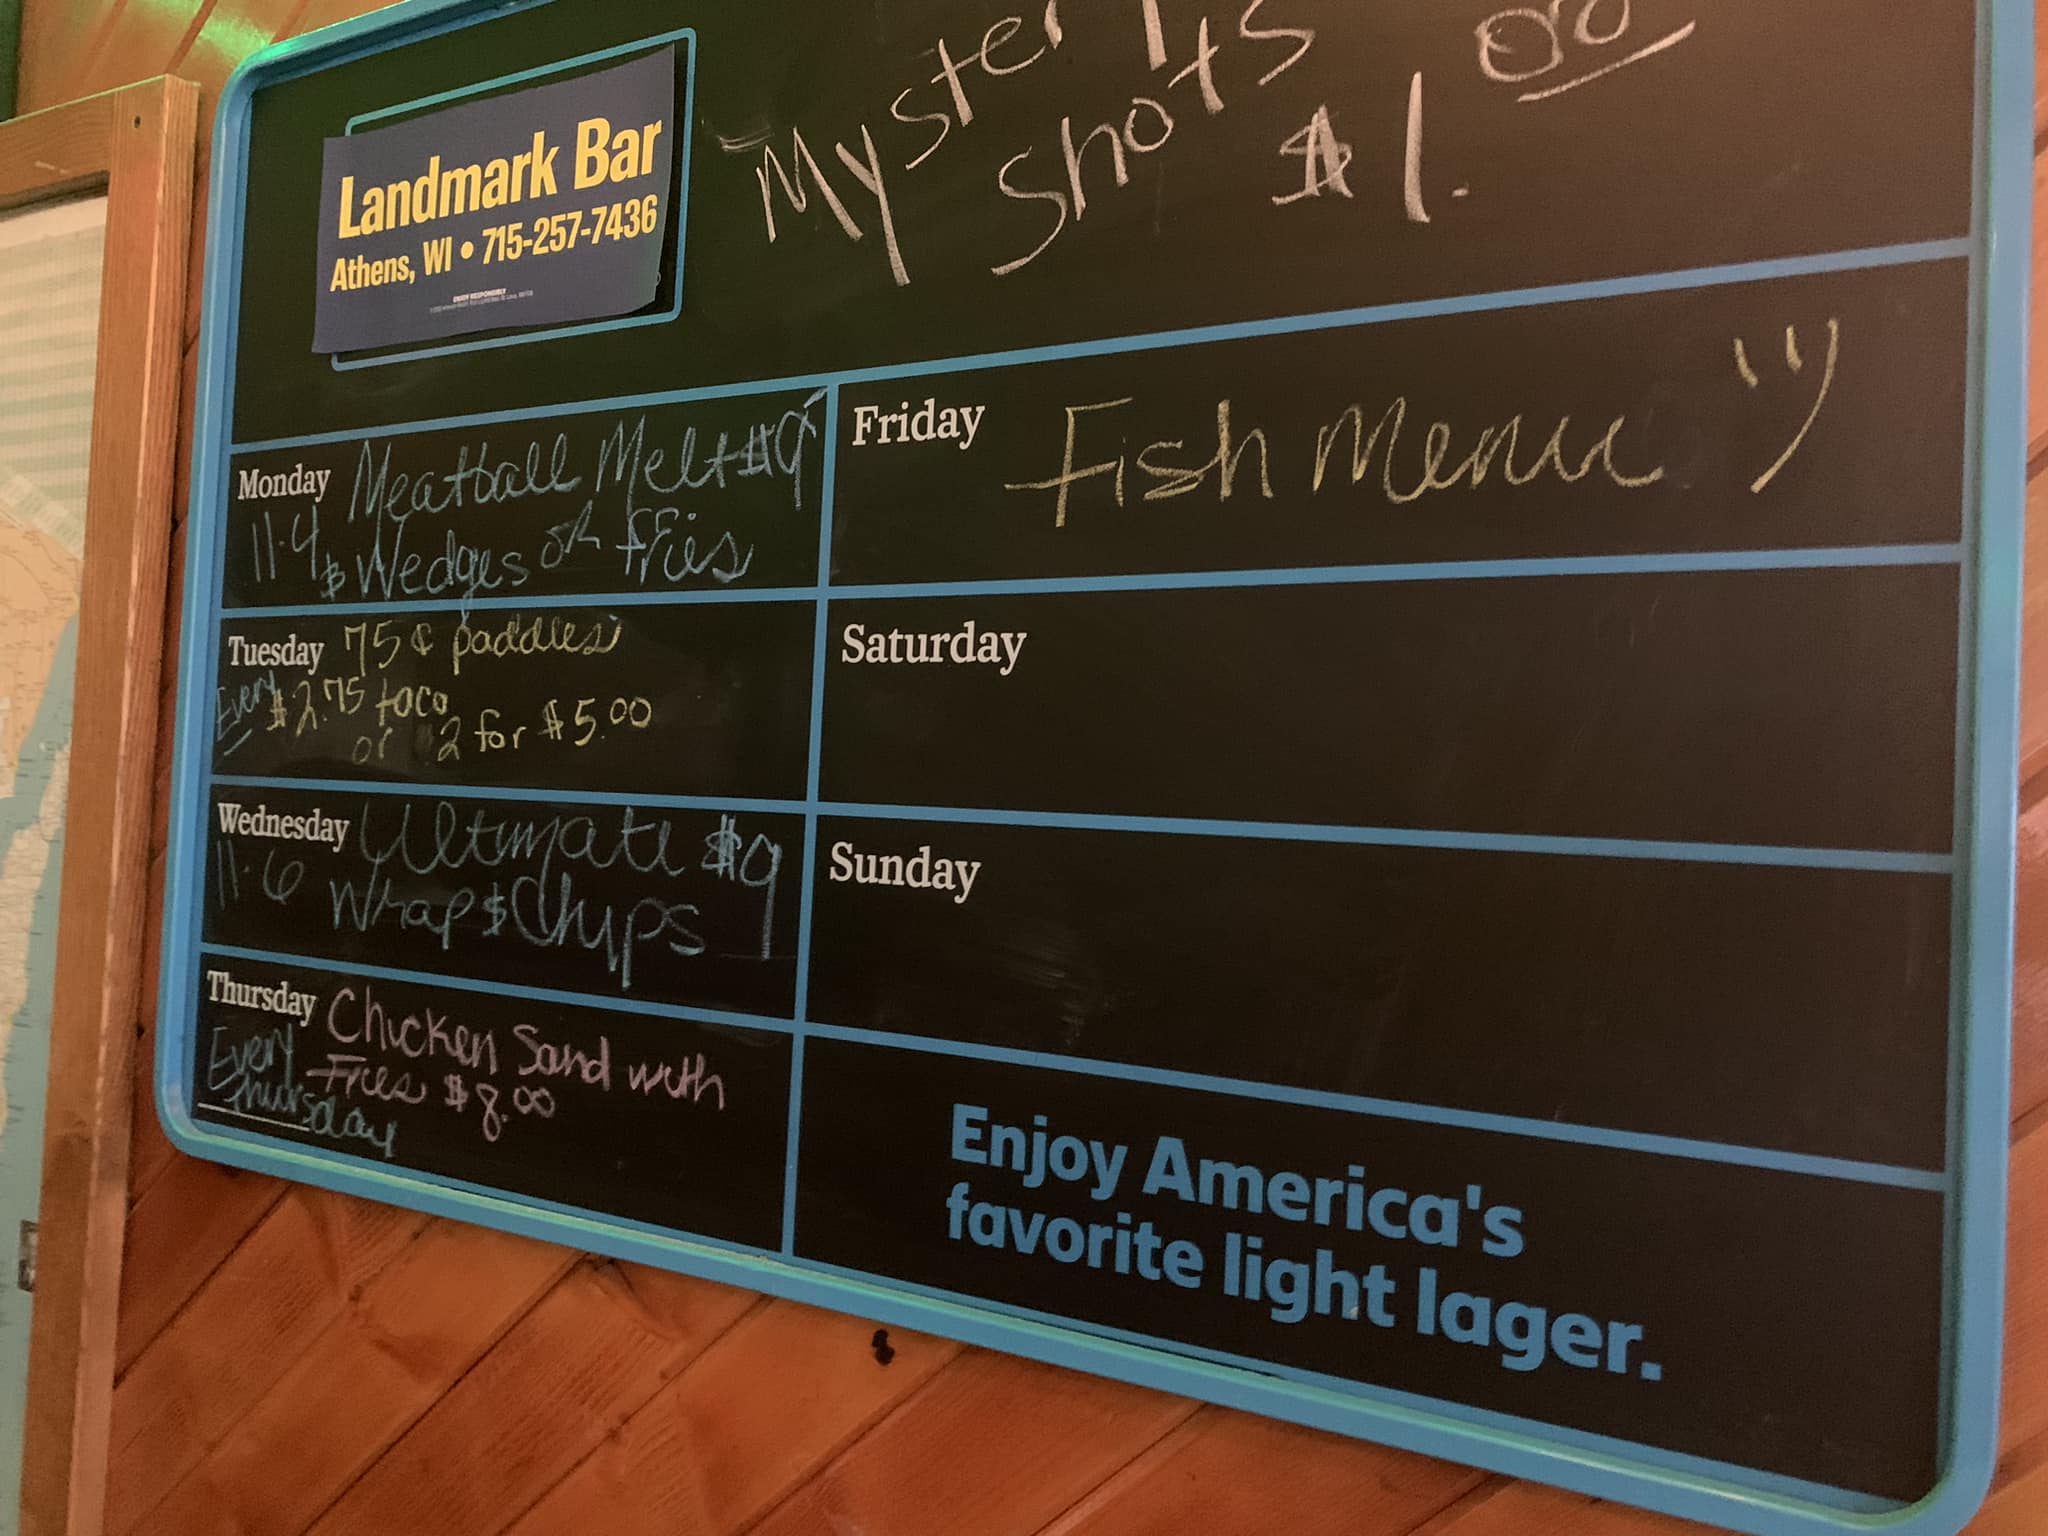 Mystery
Shots
$1.00
Landmark Bar
Athens, WI • 715-257-7436
ENJOY RESPONSIBLY
Monday Meatball Melt $9
11-4 & Wedges or fries
Tuesday 75¢ paddles
Every $2.75 taco
or 2 for $5.00
Wednesday Ultimate $9
11-6 Wrap & Chips
Thursday Chicken Sand with
Fries $8.00
Every
Thursday
Friday Fish Menu
Saturday
Sunday
Enjoy America's
favorite light lager.